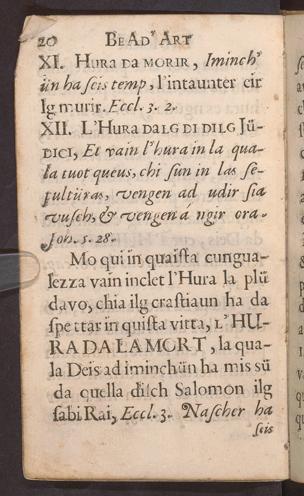 20 BEAD' ART
XI. HURA DA MORIR, Iminch'
ün ha scis temp, l'intaunter cir
lg murir. Eccl. 3. 2.
XII. L'HURA DALG DI DILG JÜ-
DICI, Et vain l'hura in la qua-
la tuot queus, chi sun in las se-
pultüras, vengen ad udir sia
vusch, & vengen à ngir ora.
Joh. 5. 28.
Mo qui in quaista cungua-
lezza vain inclet l'Hura la plü
davo, chia ilg crastiaun ha da
spettar in quista vitta, L'HU-
RA DA LA MORT, la qua-
la Deis ad iminchün ha mis sü
da quella disch Salomon ilg
sabi Rai, Eccl. 3. Nascher ha
scis